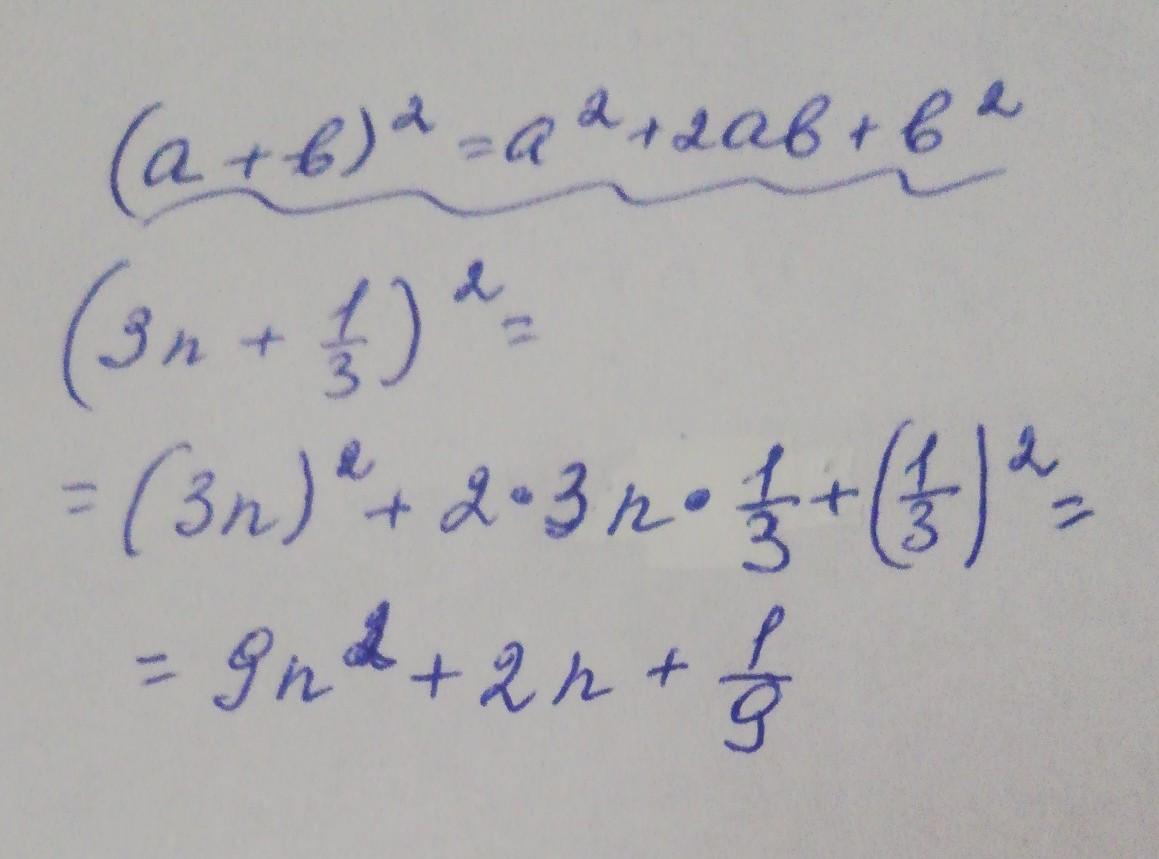 (a + b)² = a² + 2ab + b²
(3n + 1/3)² =
= (3n)² + 2 · 3n · 1/3 + (1/3)² =
= 9n² + 2n + 1/9